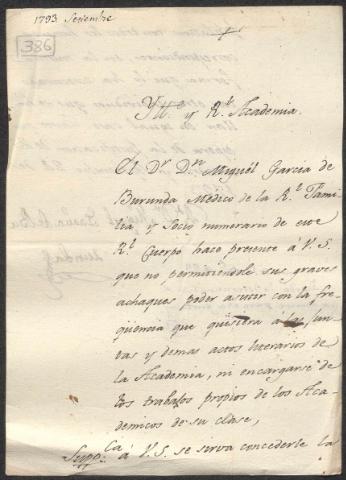 1793 Setiembre
386
Yll.e y R.l Academia.
El D.r D.n Miguèl Garcia de
Burunda Medico de la R.l Fami
lia, y Socio numerario de este
R.l Cuerpo hace presente à V. S.
que no permitiendole sus graves
achaques poder asistir con la fre
qüencia que quisiera à las Jun
tas y demas actos literarios de
la Academia, ni encargarse de
los trabajos propios de los Aca
demicos de su clase,
Supp.ca à V. S. se sirva concederle la